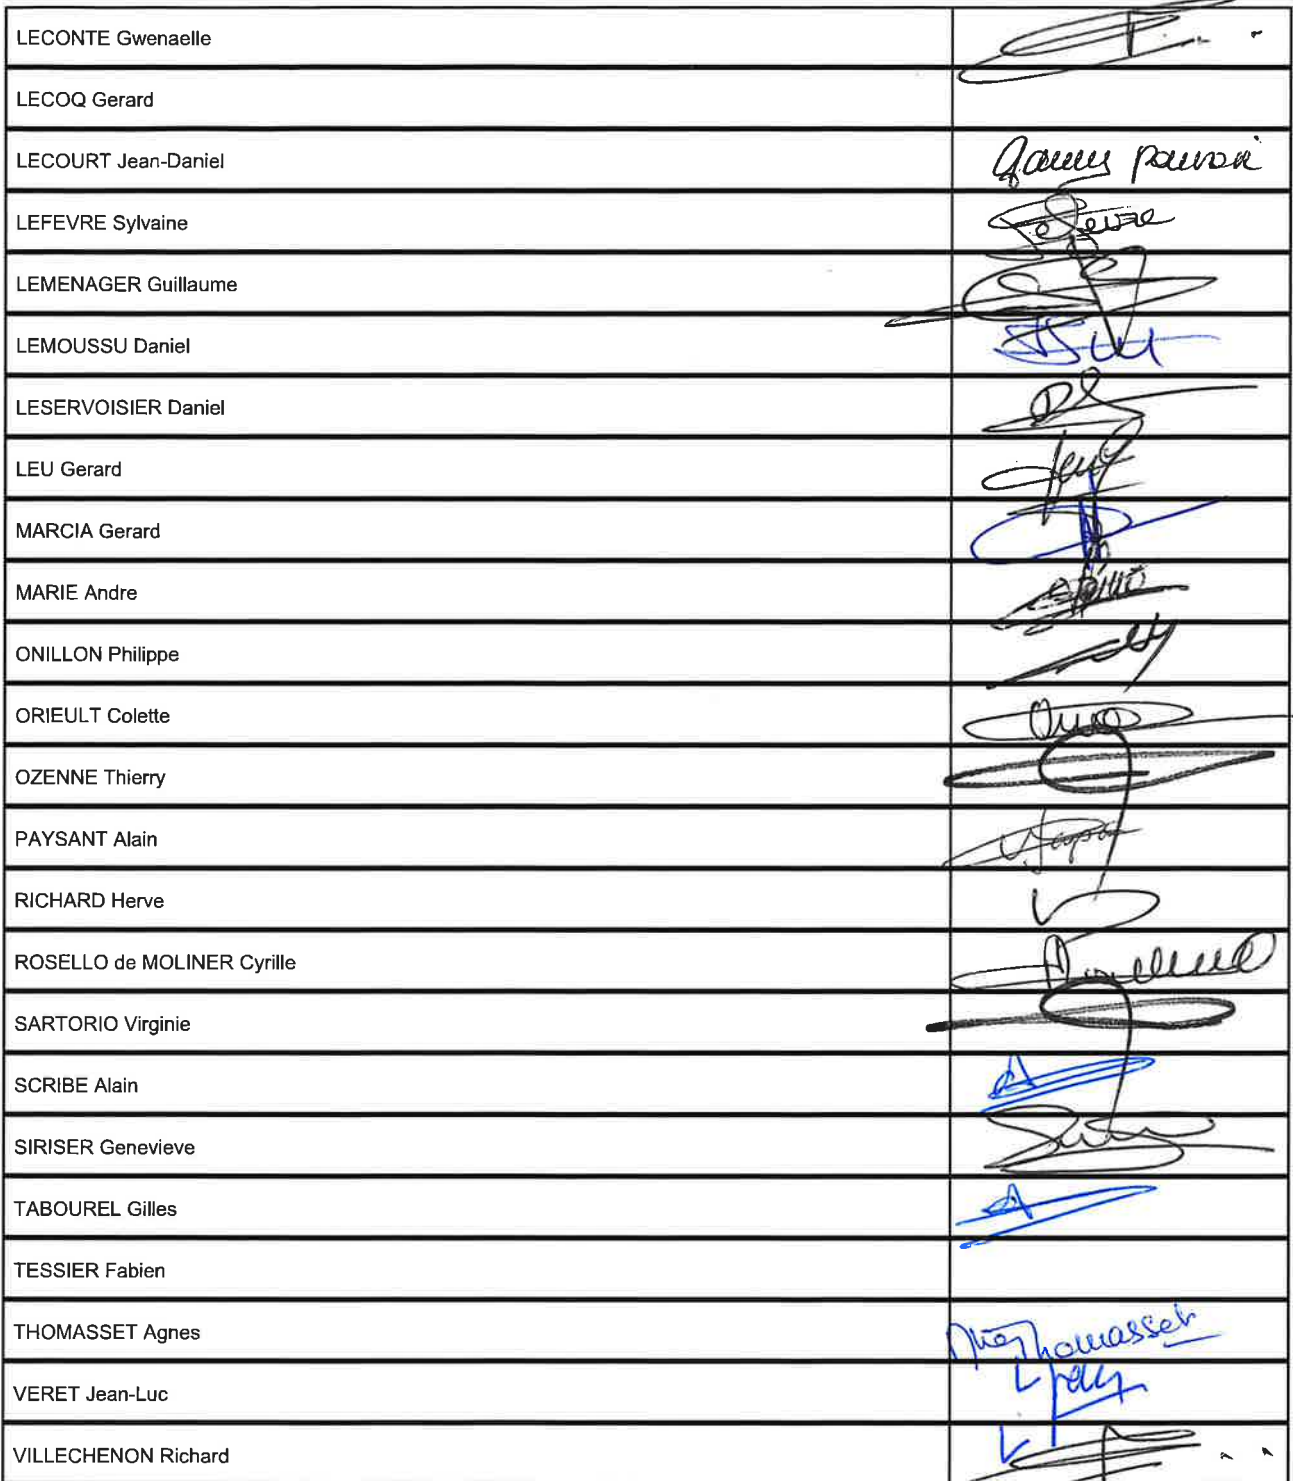 LECONTE Gwenaelle
LECOQ Gerard
LECOURT Jean-Daniel
LEFEVRE Sylvaine
LEMENAGER Guillaume
LEMOUSSU Daniel
LESERVOISIER Daniel
LEU Gerard
MARCIA Gerard
MARIE Andre
ONILLON Philippe
ORIEULT Colette
OZENNE Thierry
PAYSANT Alain
RICHARD Herve
ROSELLO de MOLINER Cyrille
SARTORIO Virginie
SCRIBE Alain
SIRISER Genevieve
TABOUREL Gilles
TESSIER Fabien
THOMASSET Agnes Thomasset
VERET Jean-Luc
VILLECHENON Richard